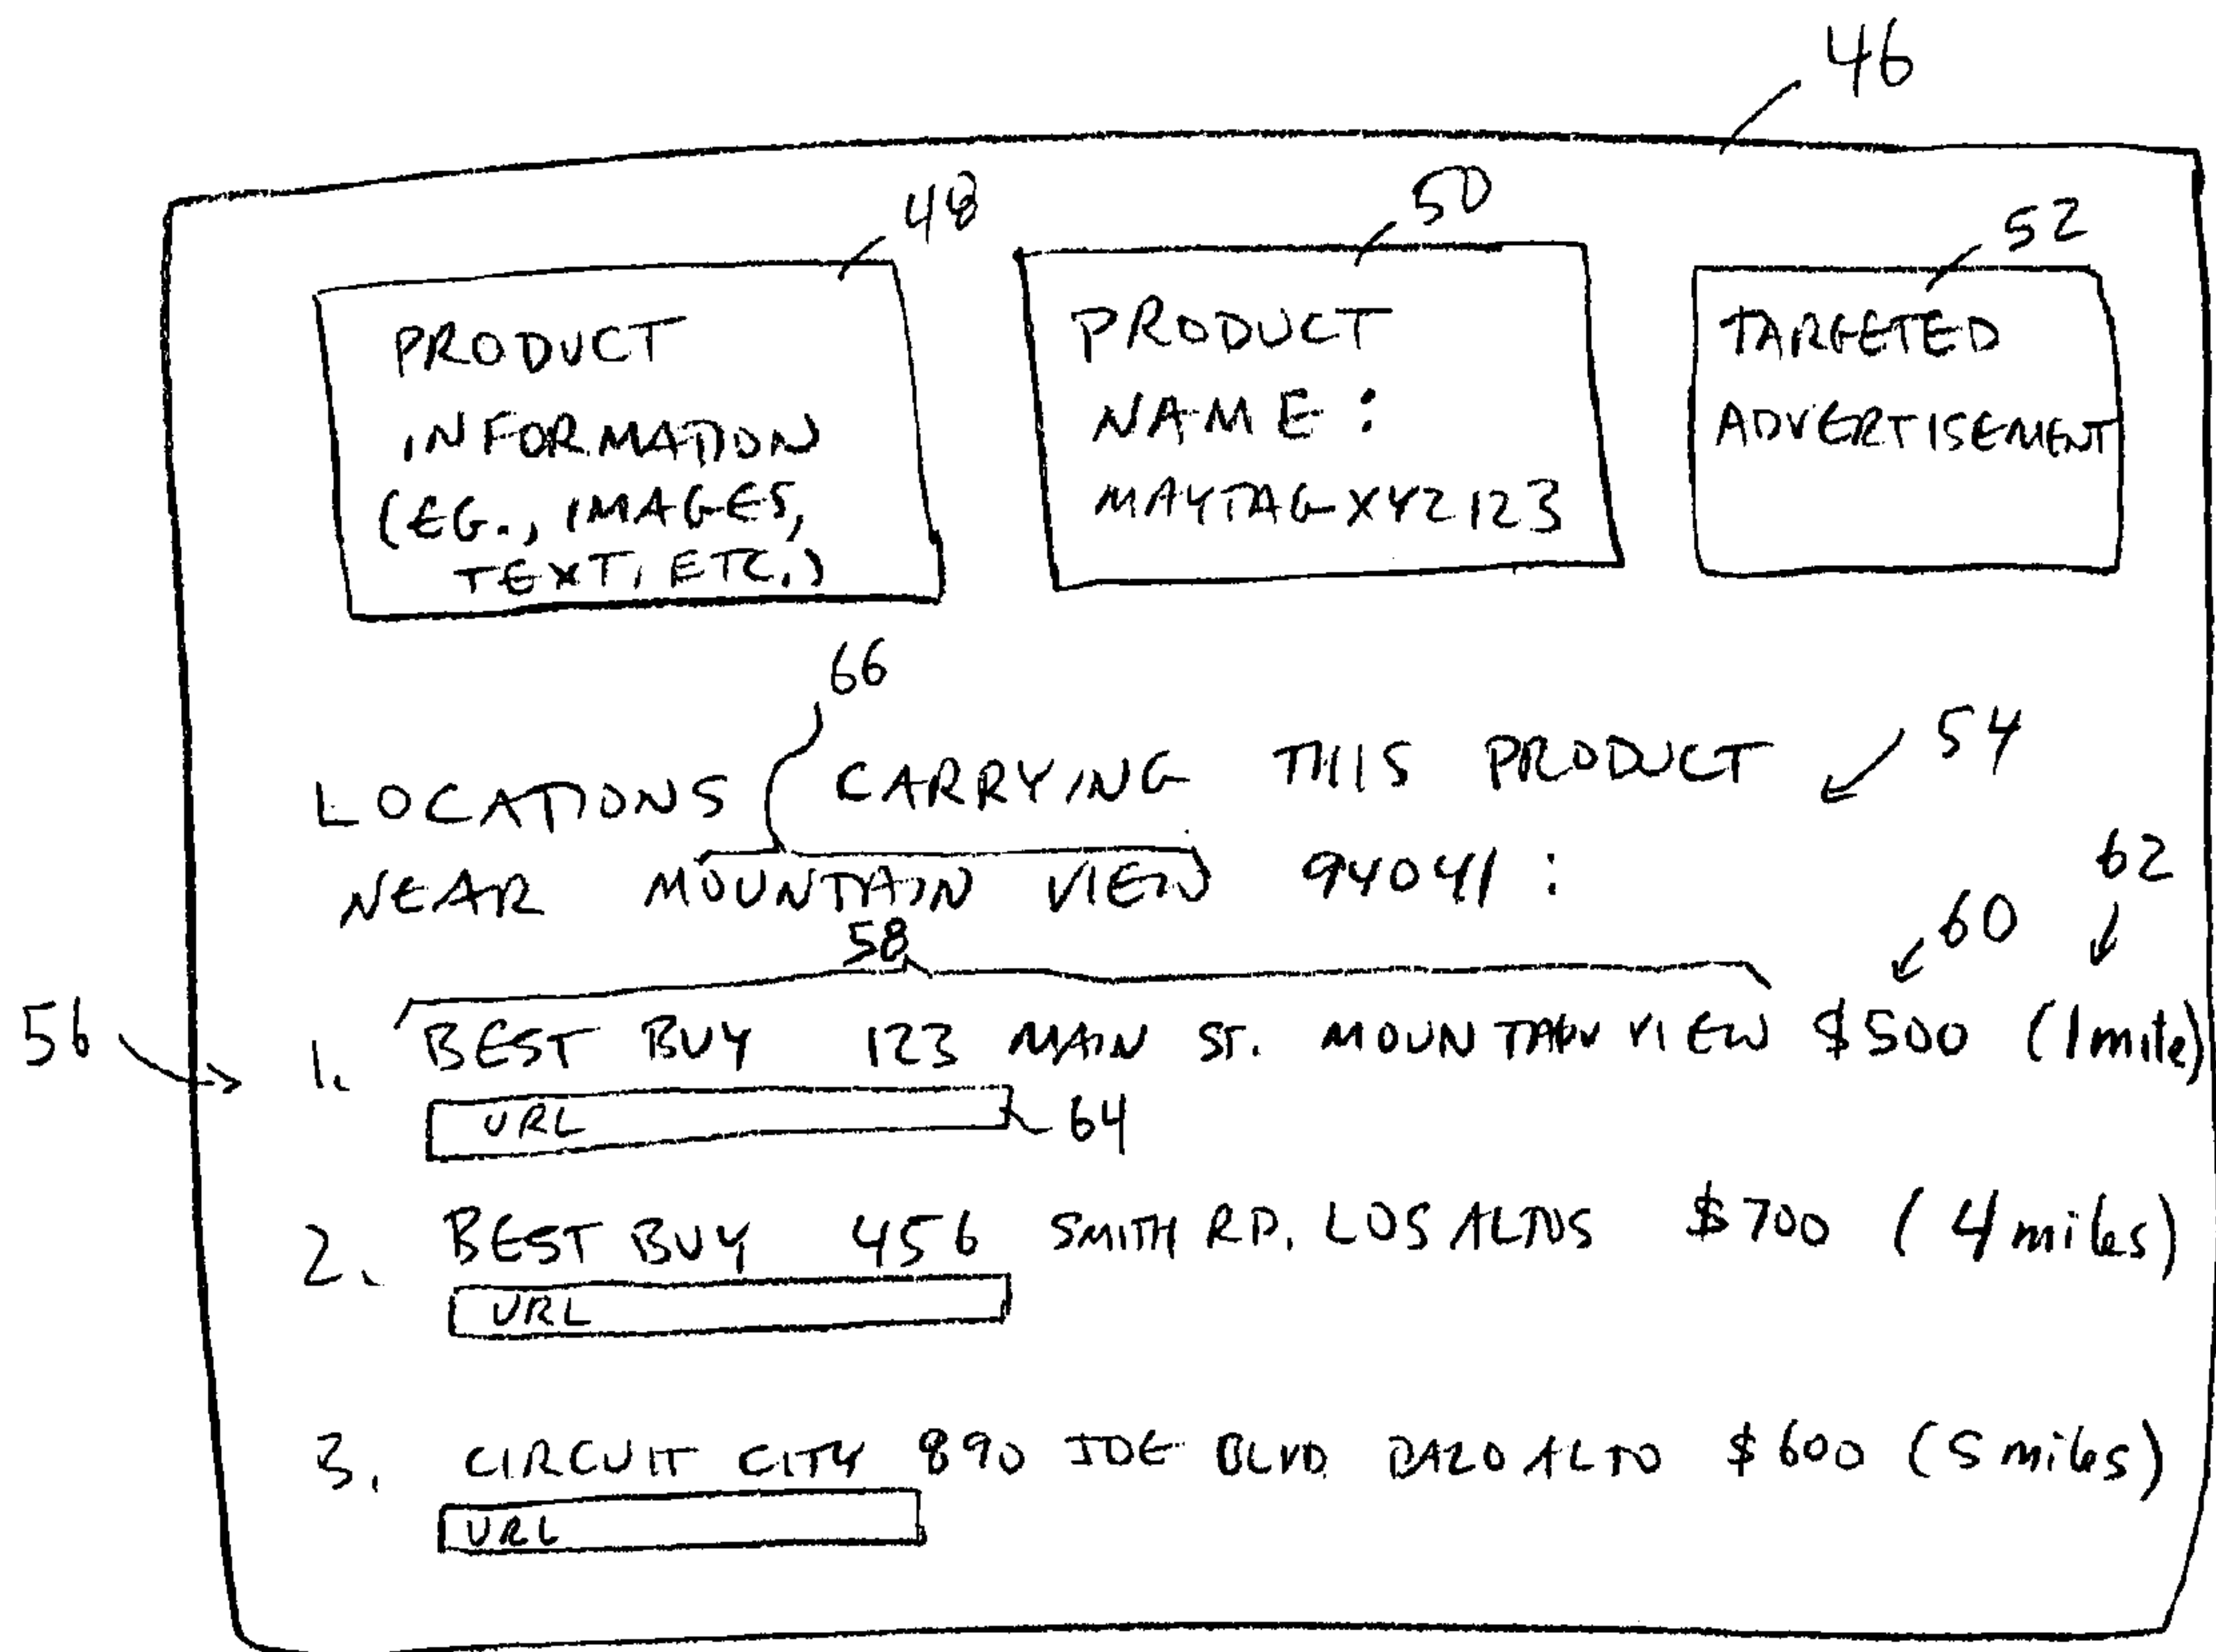 46
48
50
52
PRODUCT
INFORMATION
(EG., IMAGES,
TEXT, ETC.)
PRODUCT
NAME:
MAYTAG XYZ123
TARGETED
ADVERTISEMENT
66
LOCATIONS CARRYING THIS PRODUCT
54
NEAR MOUNTAIN VIEW 94041:
62
58
60
56
1. BEST BUY 123 MAIN ST. MOUNTAIN VIEW $500 (1 mile)
URL
64
2. BEST BUY 456 SMITH RD. LOS ALTOS $700 (4 miles)
URL
3. CIRCUIT CITY 890 JOE BLVD. PALO ALTO $600 (5 miles)
URL